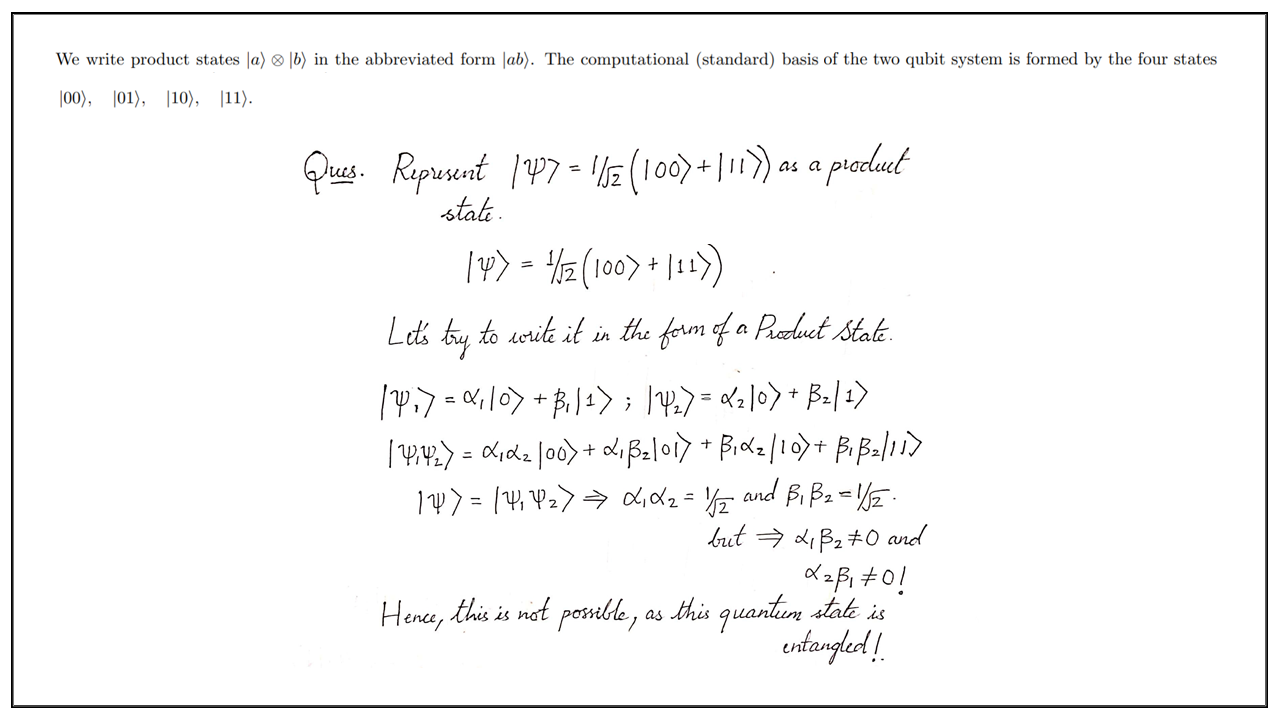 We write product states |a⟩ ⊗ |b⟩ in the abbreviated form |ab⟩. The computational (standard) basis of the two qubit system is formed by the four states
|00⟩, |01⟩, |10⟩, |11⟩.
Ques. Represent |Ψ⟩ = 1/√2 (|00⟩ + |11⟩) as a product
state.
|Ψ⟩ = 1/√2 (|00⟩ + |11⟩)
Let's try to write it in the form of a Product State.
|Ψ₁⟩ = α₁|0⟩ + β₁|1⟩ ; |Ψ₂⟩ = α₂|0⟩ + β₂|1⟩
|Ψ₁Ψ₂⟩ = α₁α₂|00⟩ + α₁β₂|01⟩ + β₁α₂|10⟩ + β₁β₂|11⟩
|Ψ⟩ = |Ψ₁Ψ₂⟩ ⇒ α₁α₂ = 1/√2 and β₁β₂ = 1/√2.
but ⇒ α₁β₂ ≠ 0 and
α₂β₁ ≠ 0!
Hence, this is not possible, as this quantum state is
entangled!!